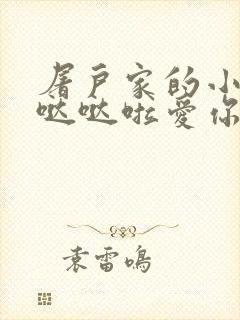 屠户家的小
哒哒啦爱你
袁雷鸣